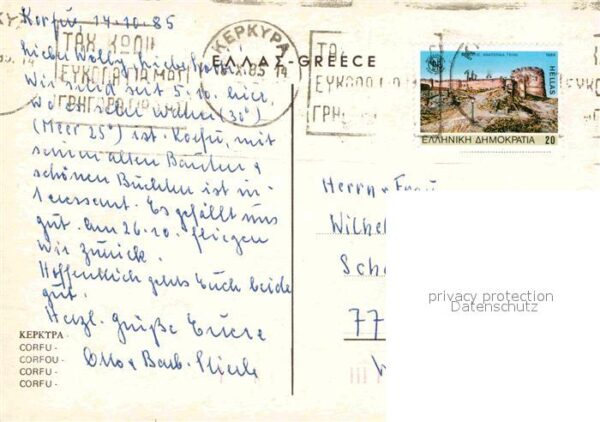 Korfu, 14.10.85
Liebe Wally, liebe
Wir sind seit 5.10. hier,
wo es sehr warm (30°)
(Meer 25°) ist. Korfu, mit
seinen alten Bäumen &
schönen Buchten ist in-
teressant. Es gefällt uns
gut. am 26.10. fliegen
wir zurück.
Hoffentlich gehts Euch beide
gut.
Herzl. Grüße Euere
Otto & Barb.
ΚΕΡΚΥΡΑ -
CORFU -
CORFOU -
CORFU -
CORFU -
ΕΛΛΑΣ-GREECE
ΤΑΧ. ΚΩΔΙΚ
ΕΥΚΟΛΟ ΓΙΑ ΜΑΣ
ΓΡΗΓΟΡΟ ΓΙΑ ΣΑΣ
ΚΕΡΚΥΡΑ
85 14
ΤΑ
ΕΥΚΟΛΟ
ΓΡΗ
HELLAS
ΕΛΛΗΝΙΚΗ ΔΗΜΟΚΡΑΤΙΑ 20
Herrn & Frau
Wilhel
Sch
77
privacy protection
Datenschutz